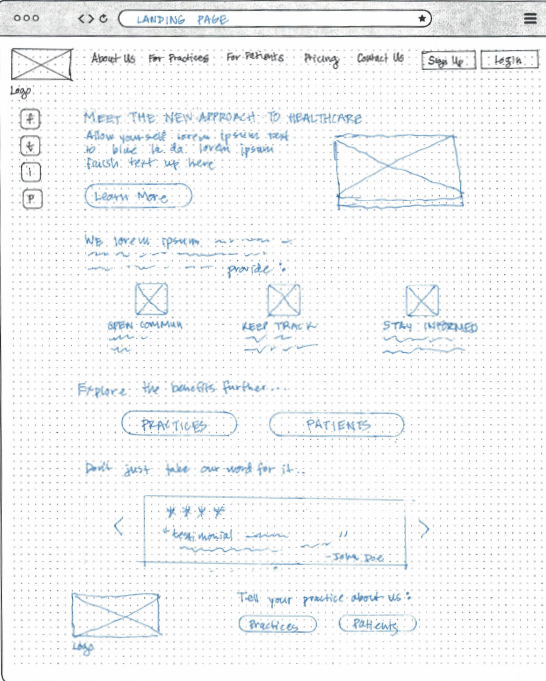 LANDING PAGE
About Us For Practices For Patients Pricing Contact Us Sign Up Login
Logo
f
t
I
P
MEET THE NEW APPROACH TO HEALTHCARE
Allow yourself lorem ipsum text
to blue la da lorem ipsum
finish text up here
Learn More
WE lorem ipsum
provide:
OPEN COMMUN KEEP TRACK STAY INFORMED
Explore the benefits further...
PRACTICES PATIENTS
Don't just take our word for it..
"testimonial "
-John Doe
Tell your practice about us:
Practices Patients
Logo